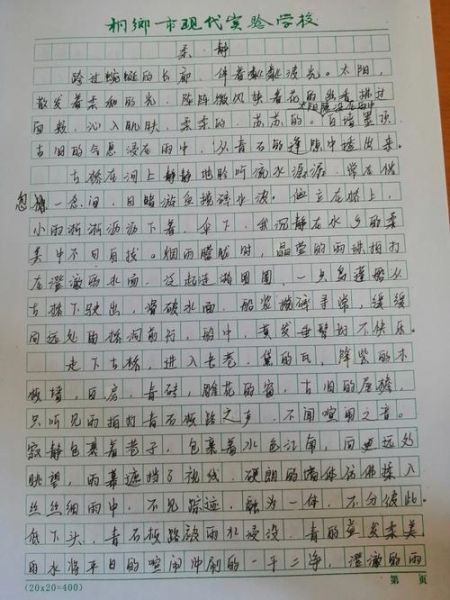 桐乡市现代实验学校
柔·静
跨过蜿蜒的长廊，伴着粼粼波光。太阳，
散发着柔和的光，阵阵微风夹着花的
太阳隐没在雨中
面颊，沁入肌肤，柔柔的，苏苏的。白墙墨顶，
古旧的气息浸在雨中，从青石的缝隙中透出来。
古桥在河上静静地聆听流水潺潺，
忽 一念间，目睹游鱼搅碎水波。伫立在桥上，
小雨淅淅沥沥下着，伞下，我沉静在水乡的柔
美中不可自拔。烟雨朦胧时，晶莹的雨珠拍打
在澄澈的水面，泛起涟漪圈圈，一只乌篷船从
古桥下驶出，穿破水面，船桨 缓缓
向远处的桥洞前行，船中，
走下古桥，进入古巷，黛的瓦，
墙，石房，青砖，雕花的窗，古旧的屋檐，
只听见雨拍打青石板路之声，不闻喧闹之音。
寂静包裹着巷子，包裹着水色江南，向更远处
眺望，雨幕遮挡了视线，硬朗的墙体仿佛揉入
丝丝细雨中，不见踪迹，融为一体，不分彼此。
低下头，青石板路被雨水浸没，青的愈发柔美，
雨水将平日的喧闹冲刷的一干二净，澄澈的雨
(20×20=400)
第 页